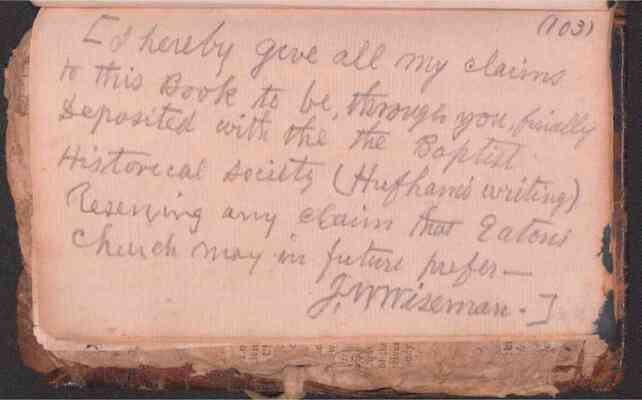 (103)
[I hereby give all my claims
to this Book to be, through you, finally
deposited with the the Baptist
Historical society (Hufhams writing)
Reserving any claim that Eatons
Church may in future prefer—
J. W Wiseman. ]